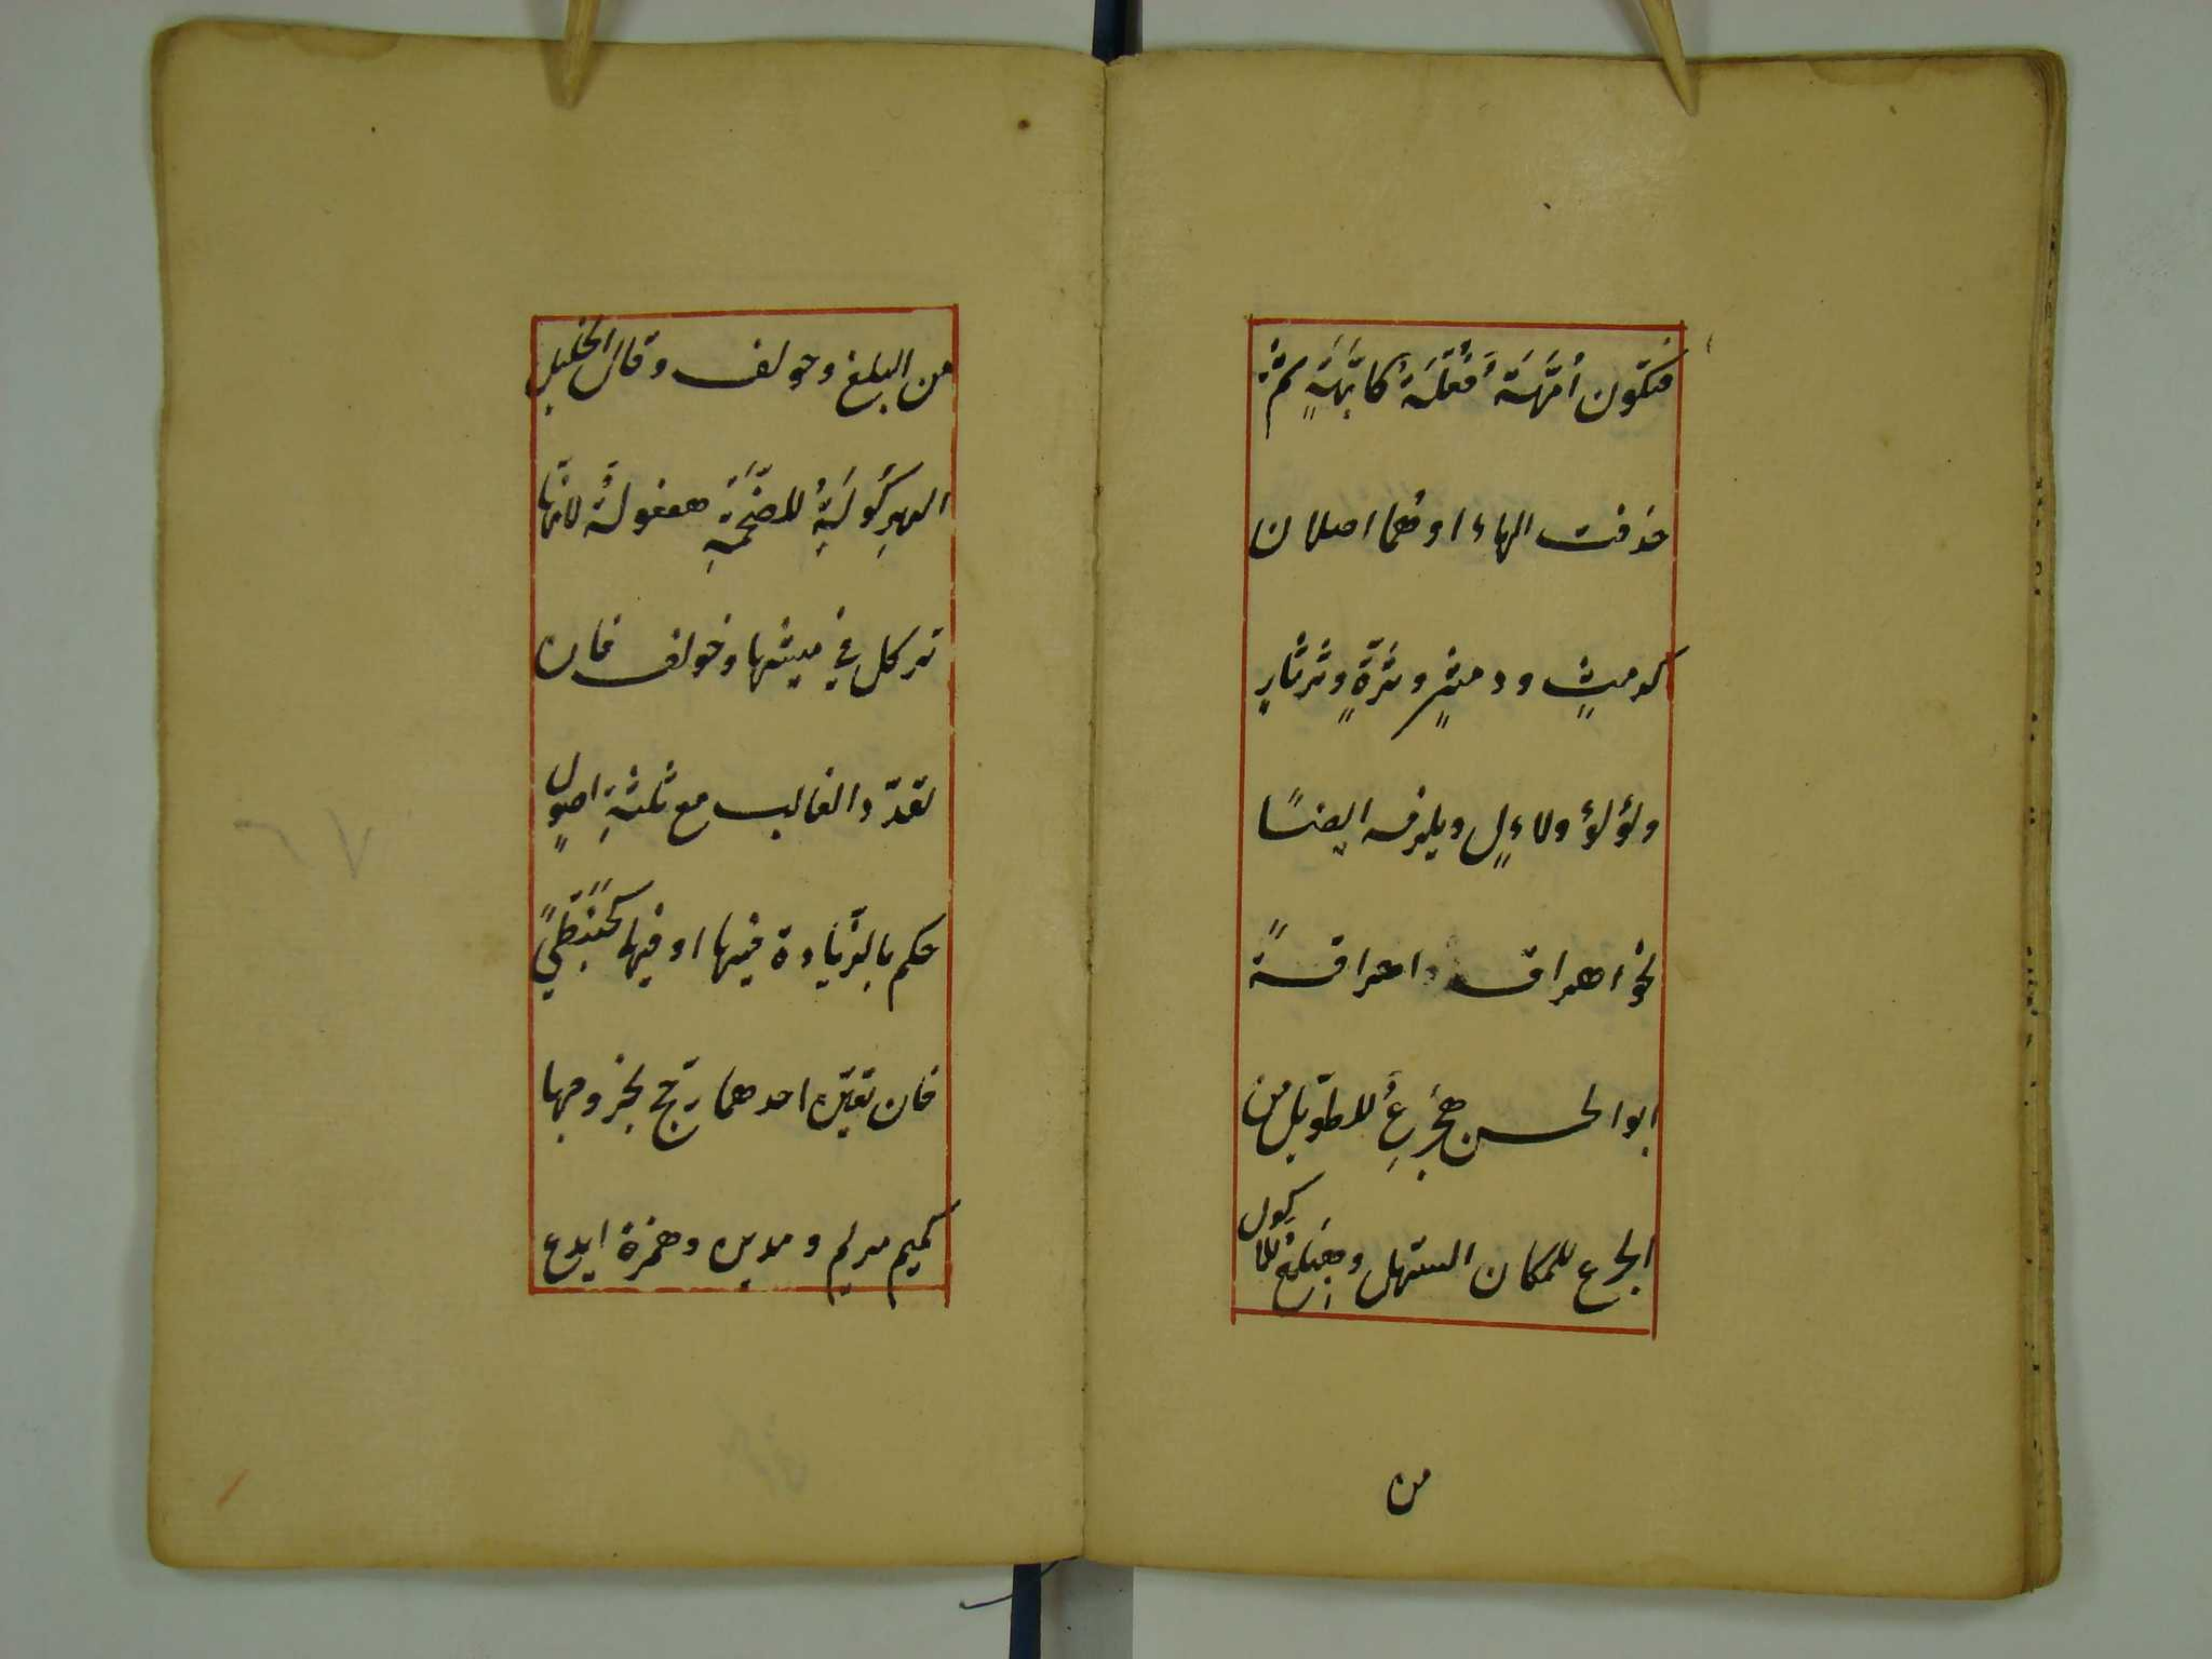 فتكون اُمَّهَة فُعَّلَةً كاُبَّهَةٍ ثمّ
حذفت الهاء او هُما اصلان
كدمثٍ ودمثرٍ وثَرَّةٍ وثرثارٍ
ولؤلؤ ولاءلٍ ويلزمه ايضًا
نحو اهراق اهراقةً
ابو الحسن هِجْرَعٌ للطّويل من
الجرع للمكان السّهل وهِبْلَعٌ للاكول
من
من البلع وخولف وقال الخليل
الهِرْكَوْلَةُ للضَّخْمَةِ هفعولة لانّها
تركل في مشيها وخولف فان
تعدّد الغالب مع ثلثة اصولٍ
حكم بالزّيادة فيها او فيهما كحَبَنْطًى
فان تعيّن احدهما رجّح بخروجها
كميم مريم ومدين وهمزة ايدع